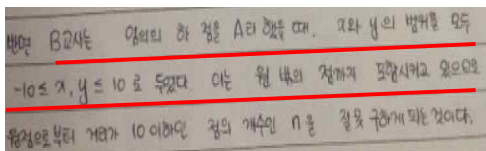 반면 B교사는 임의의 한 점을 A라 했을 때, x와 y의 범위를 모두
-10≤x, y≤10 로 두었다. 이는 원 밖의 점까지 포함시키고 있으므로
원점으로부터 거리가 10이하인 점의 개수인 n을 잘못 구하게 되는 것이다.